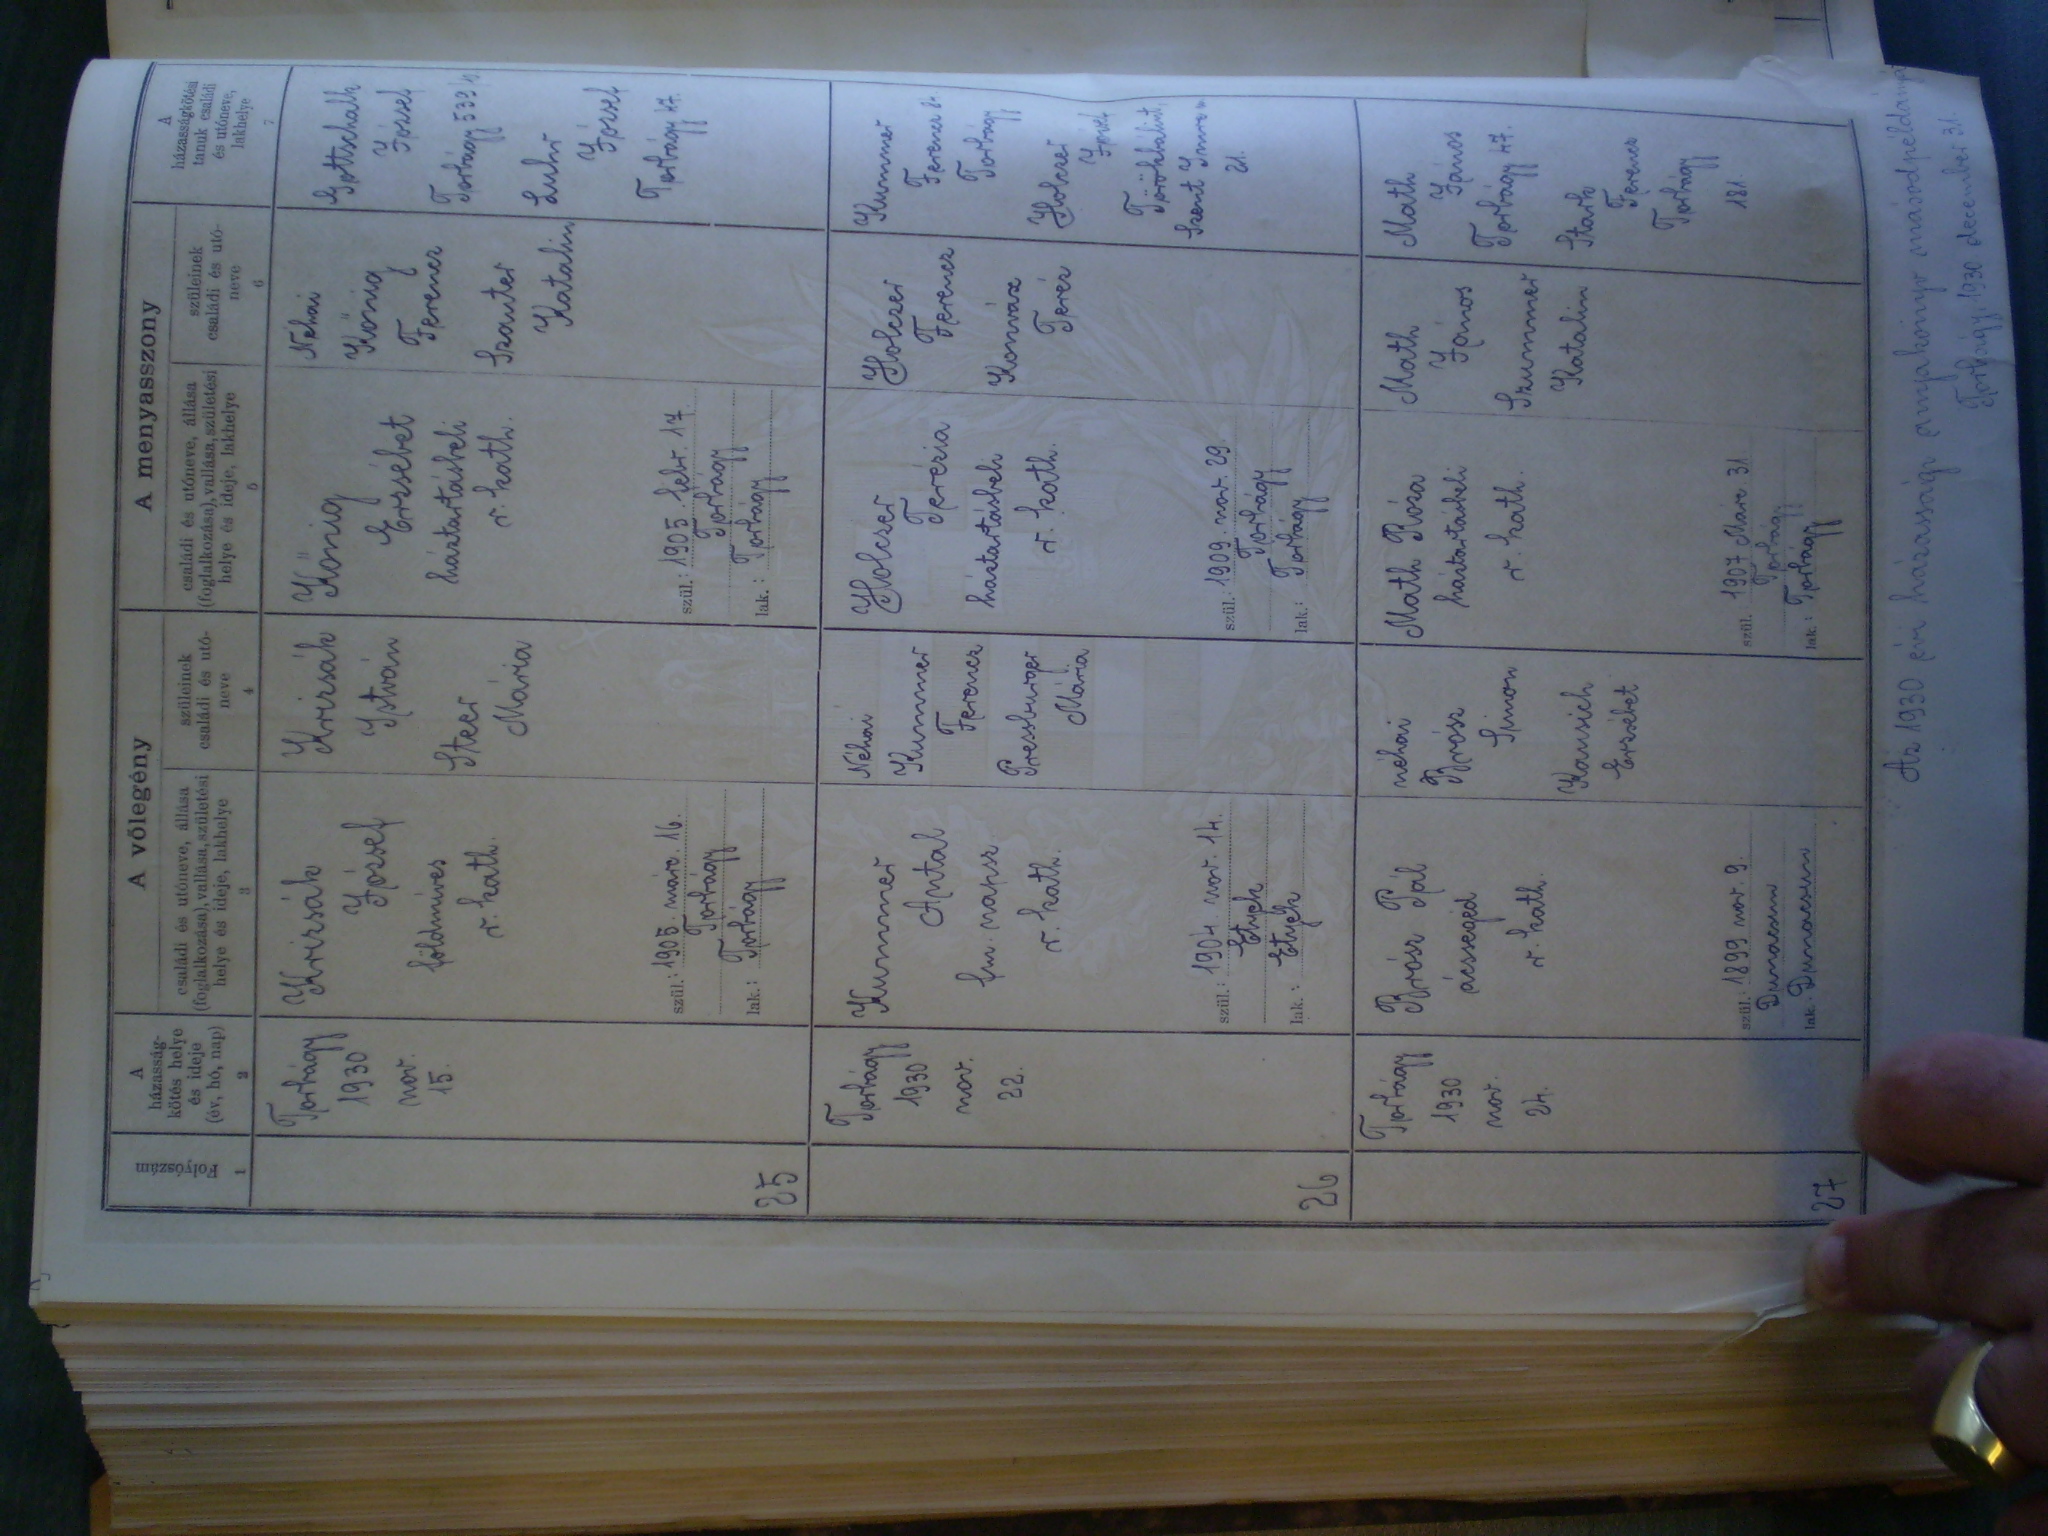 A vőlegény
A menyasszony
Folyószám
1
A
házasság-
kötés helye
és ideje
(év, hó, nap)
2
családi és utóneve, állása
(foglalkozása), vallása, születési
helye és ideje, lakhelye
3
szüleinek
családi és utó-
neve
4
családi és utóneve, állása
(foglalkozása), vallása, születési
helye és ideje, lakhelye
5
szüleinek
családi és utó-
neve
6
A
házasságkötési
tanuk családi
és utóneve,
lakhelye
7
25
Torbágy
1930
nov.
15.
Krizsák
József
földmüves
r. kath.
szül.: 1905. márc. 16.
Torbágy
lak.: Torbágy
Krizsák
István
Steer
Mária
König
Erzsébet
háztartásbeli
r. kath.
szül.: 1905. febr. 17.
Torbágy
lak.: Torbágy
Néhai
König
Ferencz
Szauter
Katalin
Gottschalk
József
Torbágy 539
József
Torbágy 47.
26
Torbágy
1930
nov.
22.
Kummer
Antal
fm. napsz
r. kath.
szül.: 1904. nov. 14.
Etyek
lak.: Etyek
Néhai
Kummer
Ferencz
Pressburger
Mária
Holczer
Terézia
háztartásbeli
r. kath.
szül.: 1909. nov. 29.
Torbágy
lak.: Torbágy
Holczer
Ferencz
Komváz
Teréz
Kummer
Ferencz
Torbágy
Holczer
József
Törökbálint,
Szent Imre u.
21.
27
Torbágy
1930
nov.
24.
Brósz Pál
ácssegéd
r. kath.
szül.: 1899 nov. 9.
Dunacsun
lak.: Dunacsun
néhai
Brósz
Simon
Erzsébet
Math Róza
háztartásbeli
r. kath.
szül. 1907 Márc 31
Torbágy
lak.: Torbágy
Math
János
Szummer
Katalin
Math
János
Torbágy 47.
Stark
Ferencz
Torbágy
181.
Az 1930 évi házassági anyakönyv másodpéldánya
Torbágy, 1930 december 31.